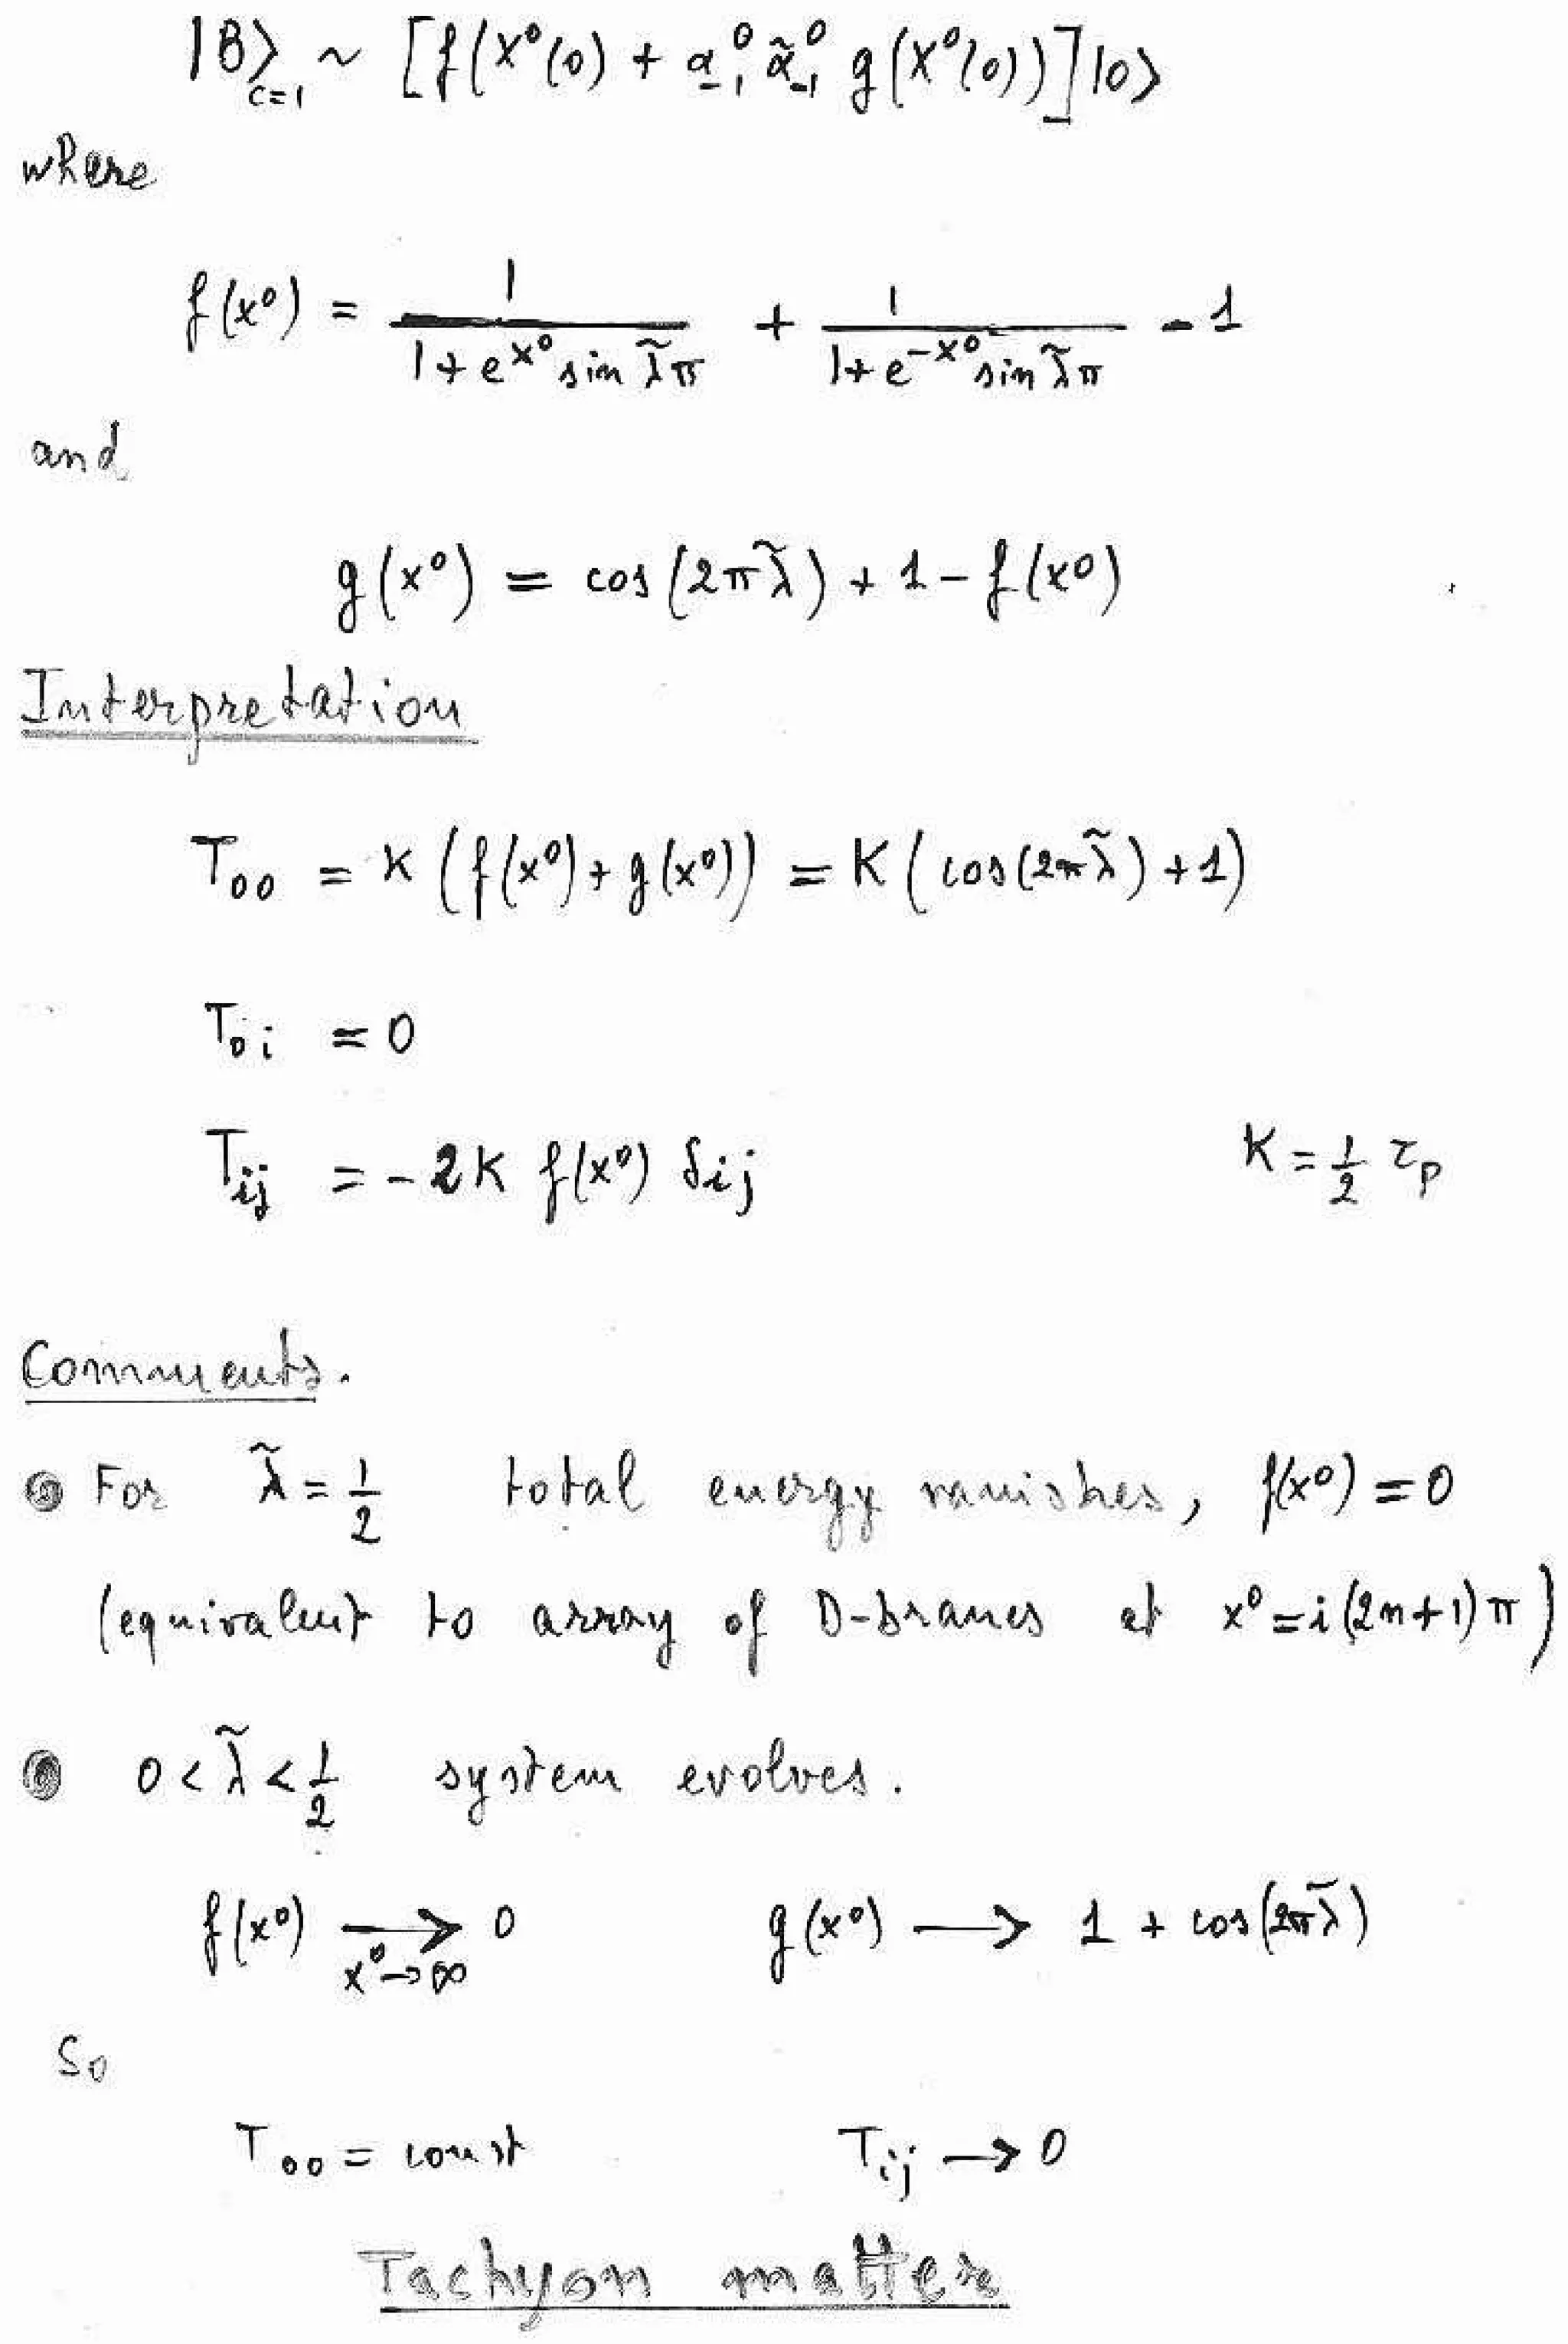 |B⟩_{c=1} ~ [f(X⁰(0) + α₋₁⁰ α̃₋₁⁰ g(X⁰(0))]|0⟩
where
f(x⁰) = 1/(1+e^{x⁰} sin λ̃π) + 1/(1+e^{-x⁰} sin λ̃π) - 1
and
g(x⁰) = cos(2πλ̃) + 1 - f(x⁰)
Interpretation
T₀₀ = K (f(x⁰) + g(x⁰)) = K (cos(2πλ̃) + 1)
T₀ᵢ = 0
Tᵢⱼ = -2K f(x⁰) δᵢⱼ K = 1/2 τₚ
Comments.
• For λ̃ = 1/2 total energy vanishes, f(x⁰) = 0
(equivalent to array of D-branes at x⁰ = i(2n+1)π)
• 0 < λ̃ < 1/2 system evolves.
f(x⁰) →_{x⁰→∞} 0 g(x⁰) → 1 + cos(2πλ̃)
So
T₀₀ = const Tᵢⱼ → 0
Tachyon matter